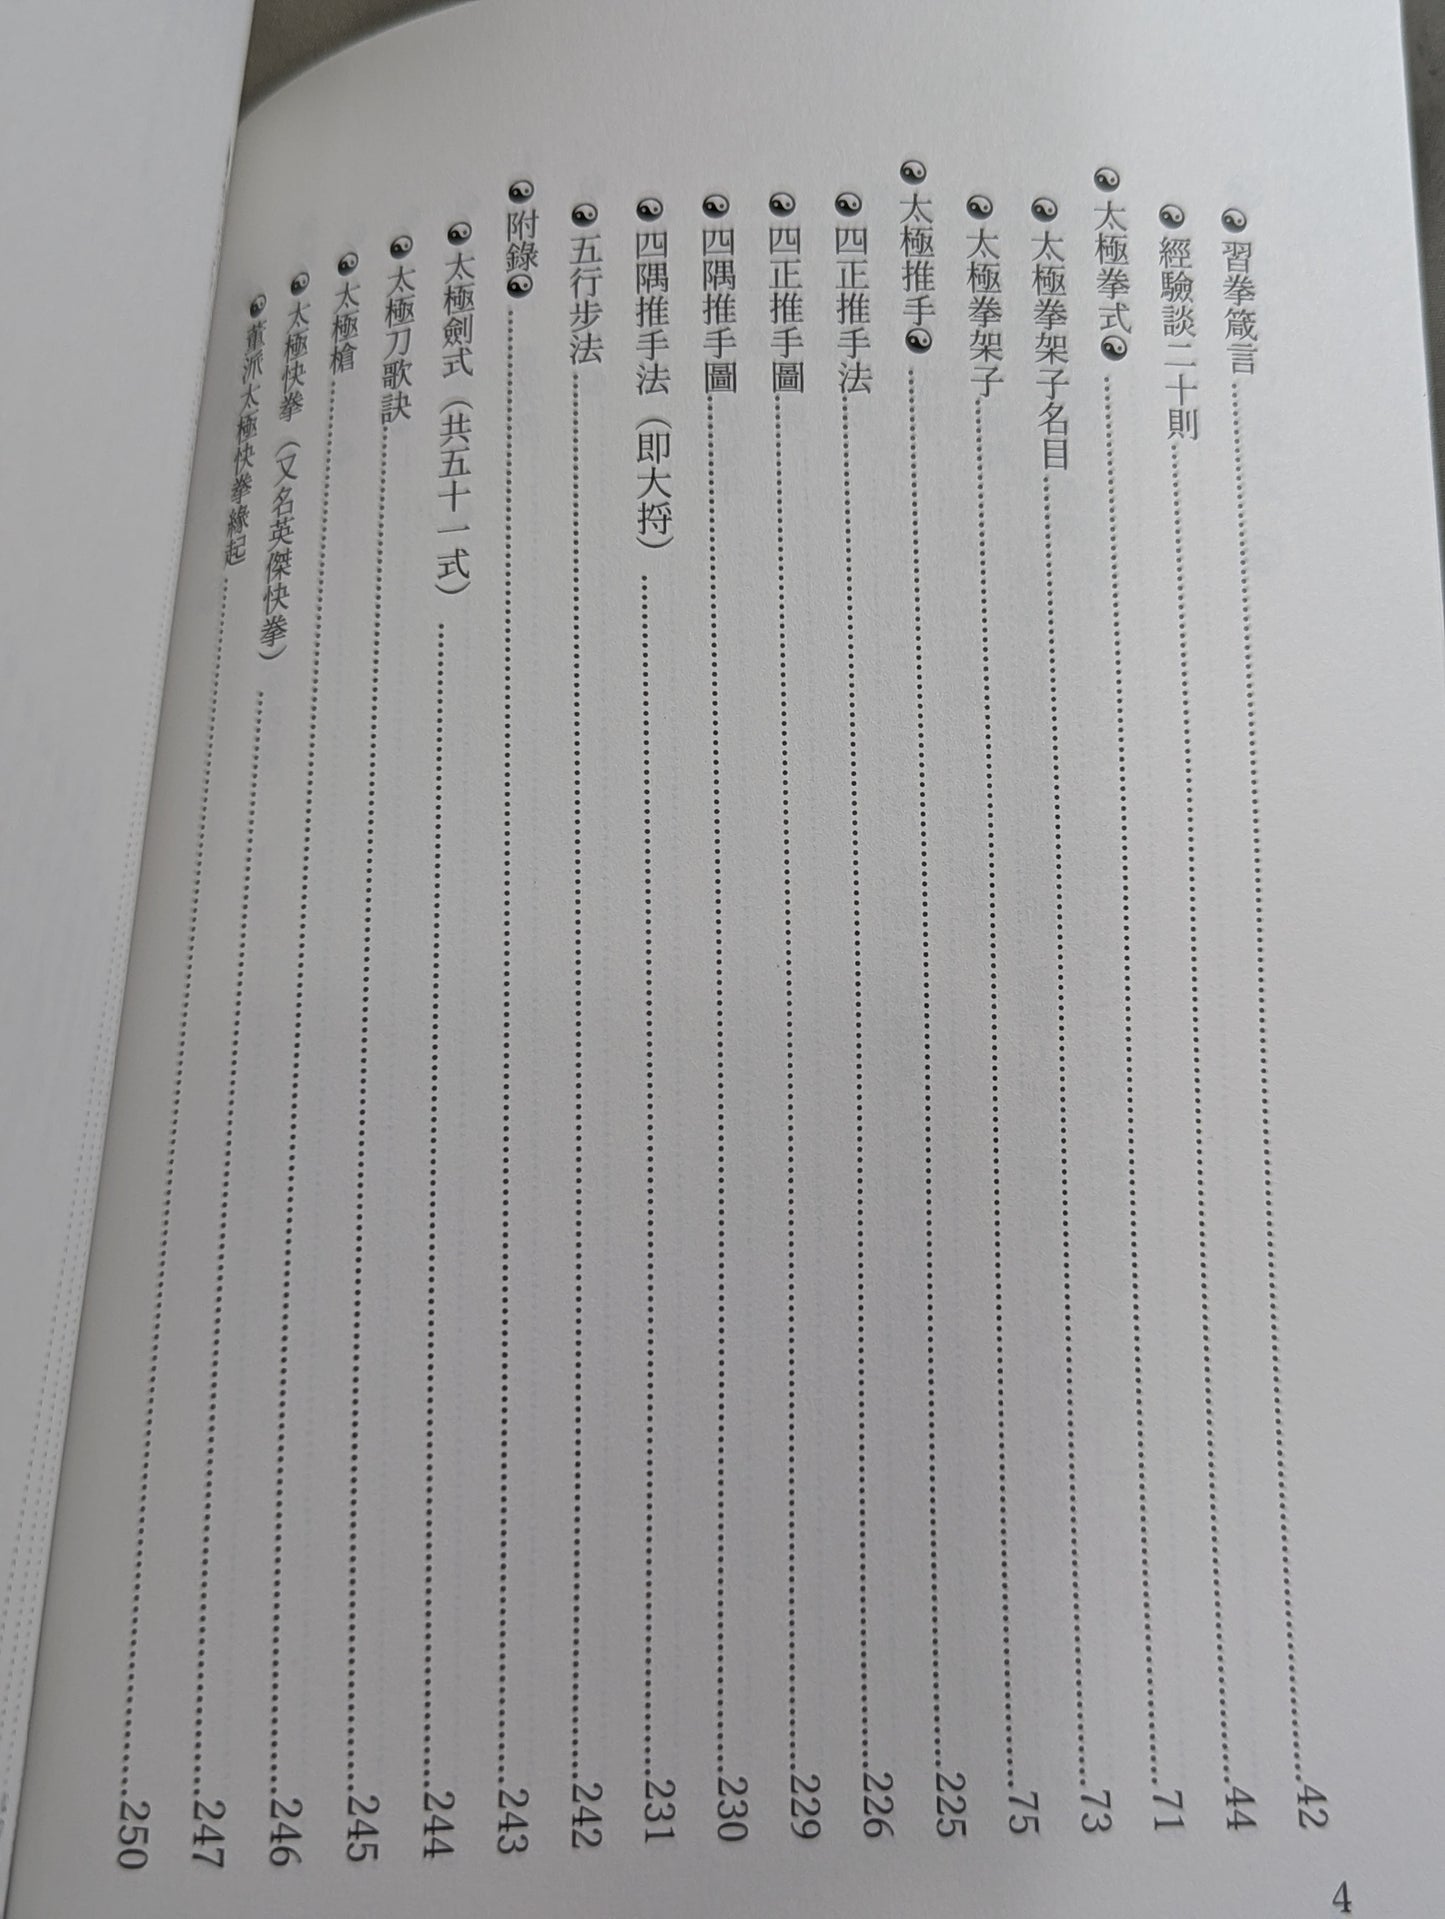 ☯習拳箴言……42
☯經驗談二十則……44
☯太極拳式☯……71
☯太極拳架子名目……73
☯太極拳架子……75
☯太極推手☯……225
☯四正推手法……226
☯四正推手圖……229
☯四隅推手圖……230
☯四隅推手法（即大捋）……231
☯五行步法……242
☯附錄☯……243
☯太極劍式（共五十一式）……244
☯太極刀歌訣……245
☯太極槍……246
☯太極快拳（又名英傑快拳）……247
☯董派太極快拳緣起……250
4